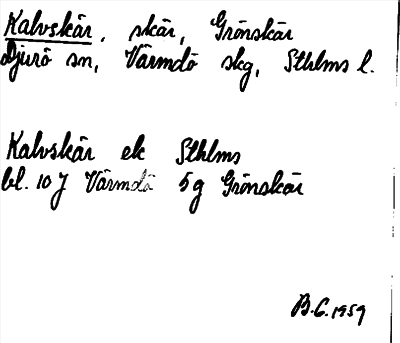 Kalvskär, skär, Grönskär
Djurö sn, Värmdö skg, Sthlms l.
Kalvskär ek Sthlms
bl. 10 J Värmdö 5g Grönskär
B.C. 1959